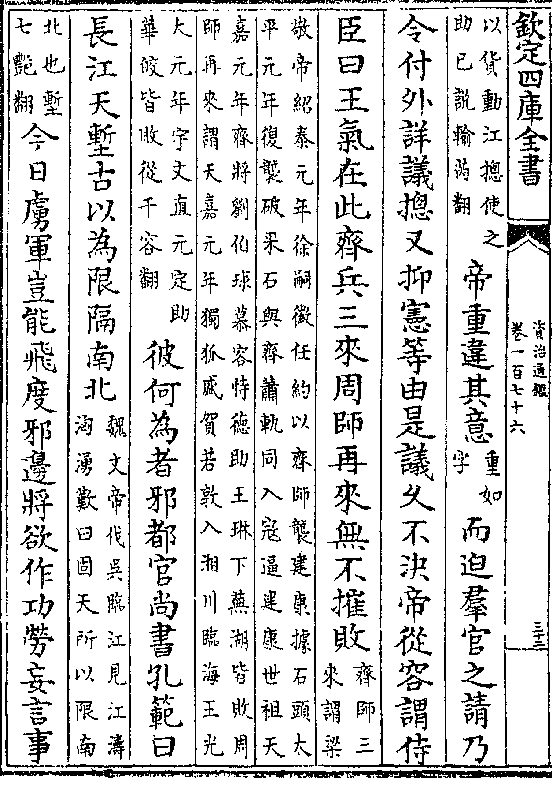 欽定四庫全書
資治通鑑
卷一百七十六
三十三
以貨動江摠使之
助已説輸芮翻
帝重違其意
重如
字
而迫羣官之請乃
令付外詳議摠又抑憲等由是議乆不決帝從容謂侍
臣曰王氣在此齊兵三來周師再來無不摧敗
齊師三
來謂梁
敬帝紹泰元年徐嗣徽任約以齊師襲建康據石頭太
平元年復襲破采石與齊蕭軌同入寇逼建康世祖天
嘉元年齊將劉伯球慕容恃德助王琳下蕪湖皆敗周
師再來謂天嘉元年獨狐盛賀若敦入湘川臨海王光
大元年宇文直元定助
華皎皆敗從千容翻
彼何為者邪都官尚書孔範曰
長江天塹古以為限隔南北
魏文帝伐吳臨江見江濤
洶湧歎曰固天所以限南
北也塹
七艷翻
今日虜軍豈能飛度邪邊將欲作功勞妄言事